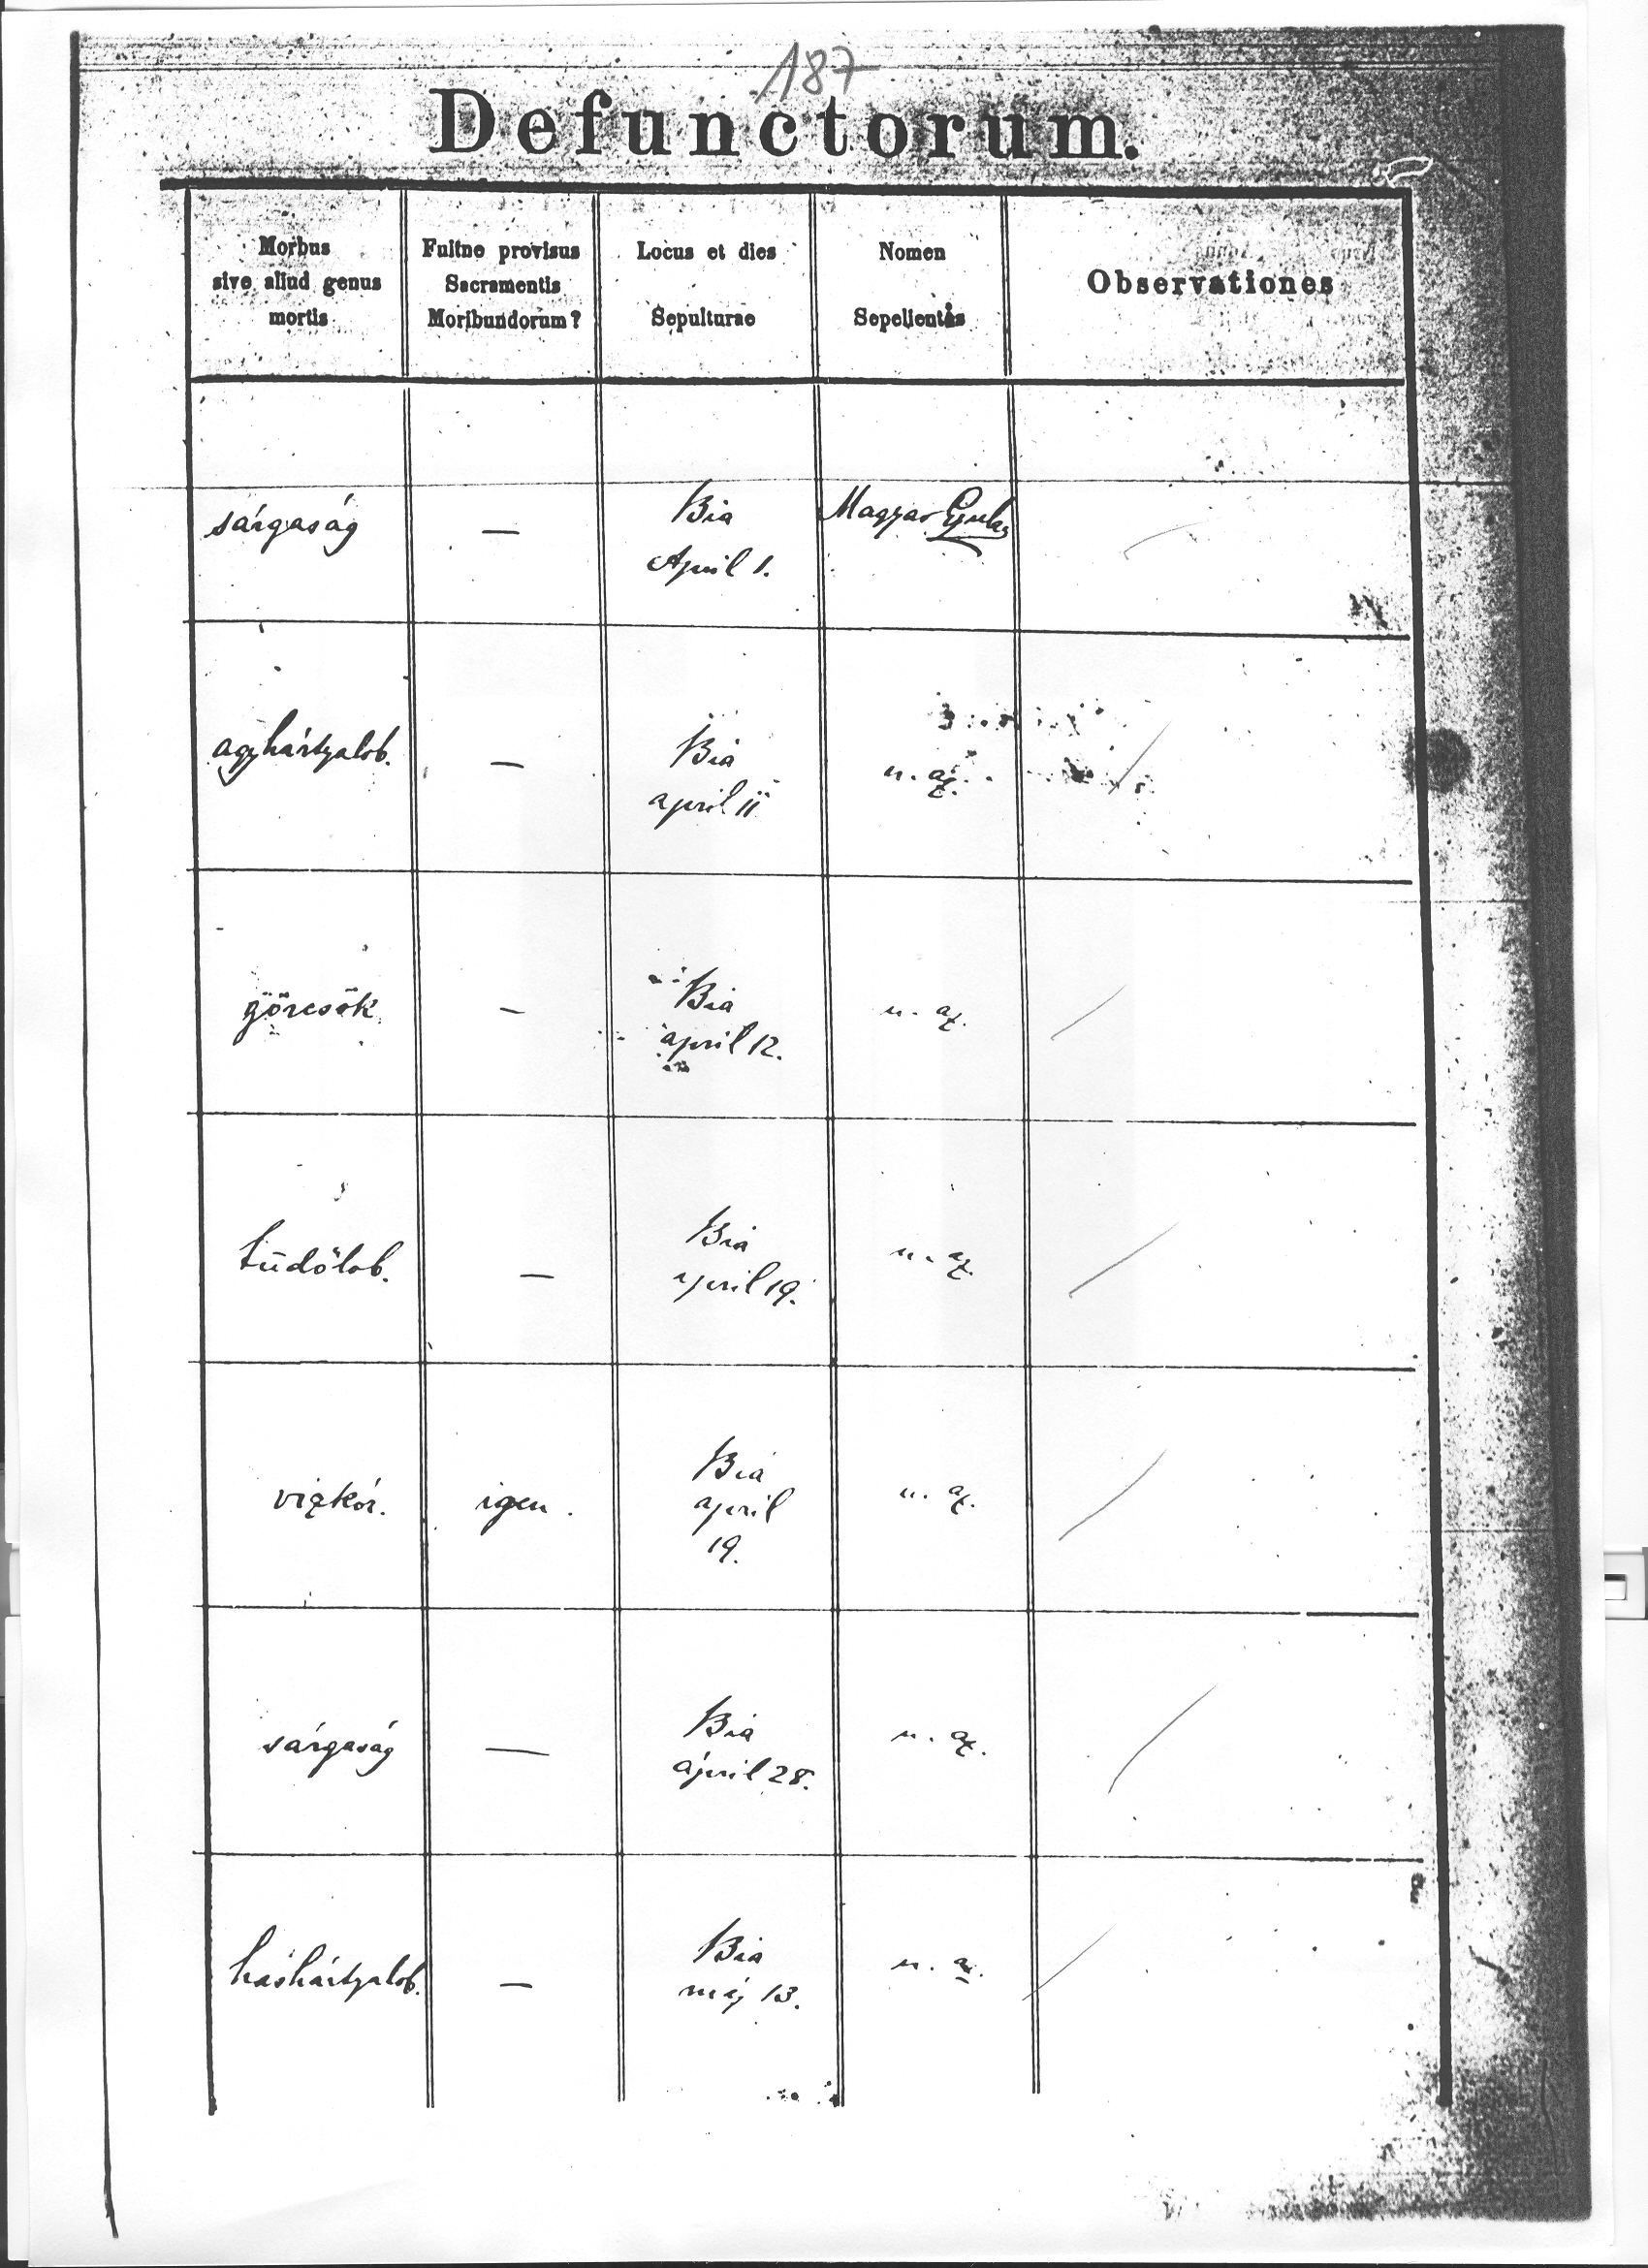 187
Defunctorum.
Morbus
sive aliud genus
mortis
Fuitne provisus
Sacramentis
Moribundorum?
Locus et dies
Sepulturae
Nomen
Sepelientis
Observationes
sárgaság
—
Bia
April 1.
Magyar Gyula
agyhártyalob.
—
Bia
april 11
u. az.
görcsök
—
Bia
april 12.
u. az.
tüdőlob.
—
Bia
april 19.
u. az.
vizkór.
igen.
Bia
april
19.
u. az.
sárgaság
—
Bia
april 28.
u. az.
hashártyalob.
—
Bia
máj 13.
u. az.